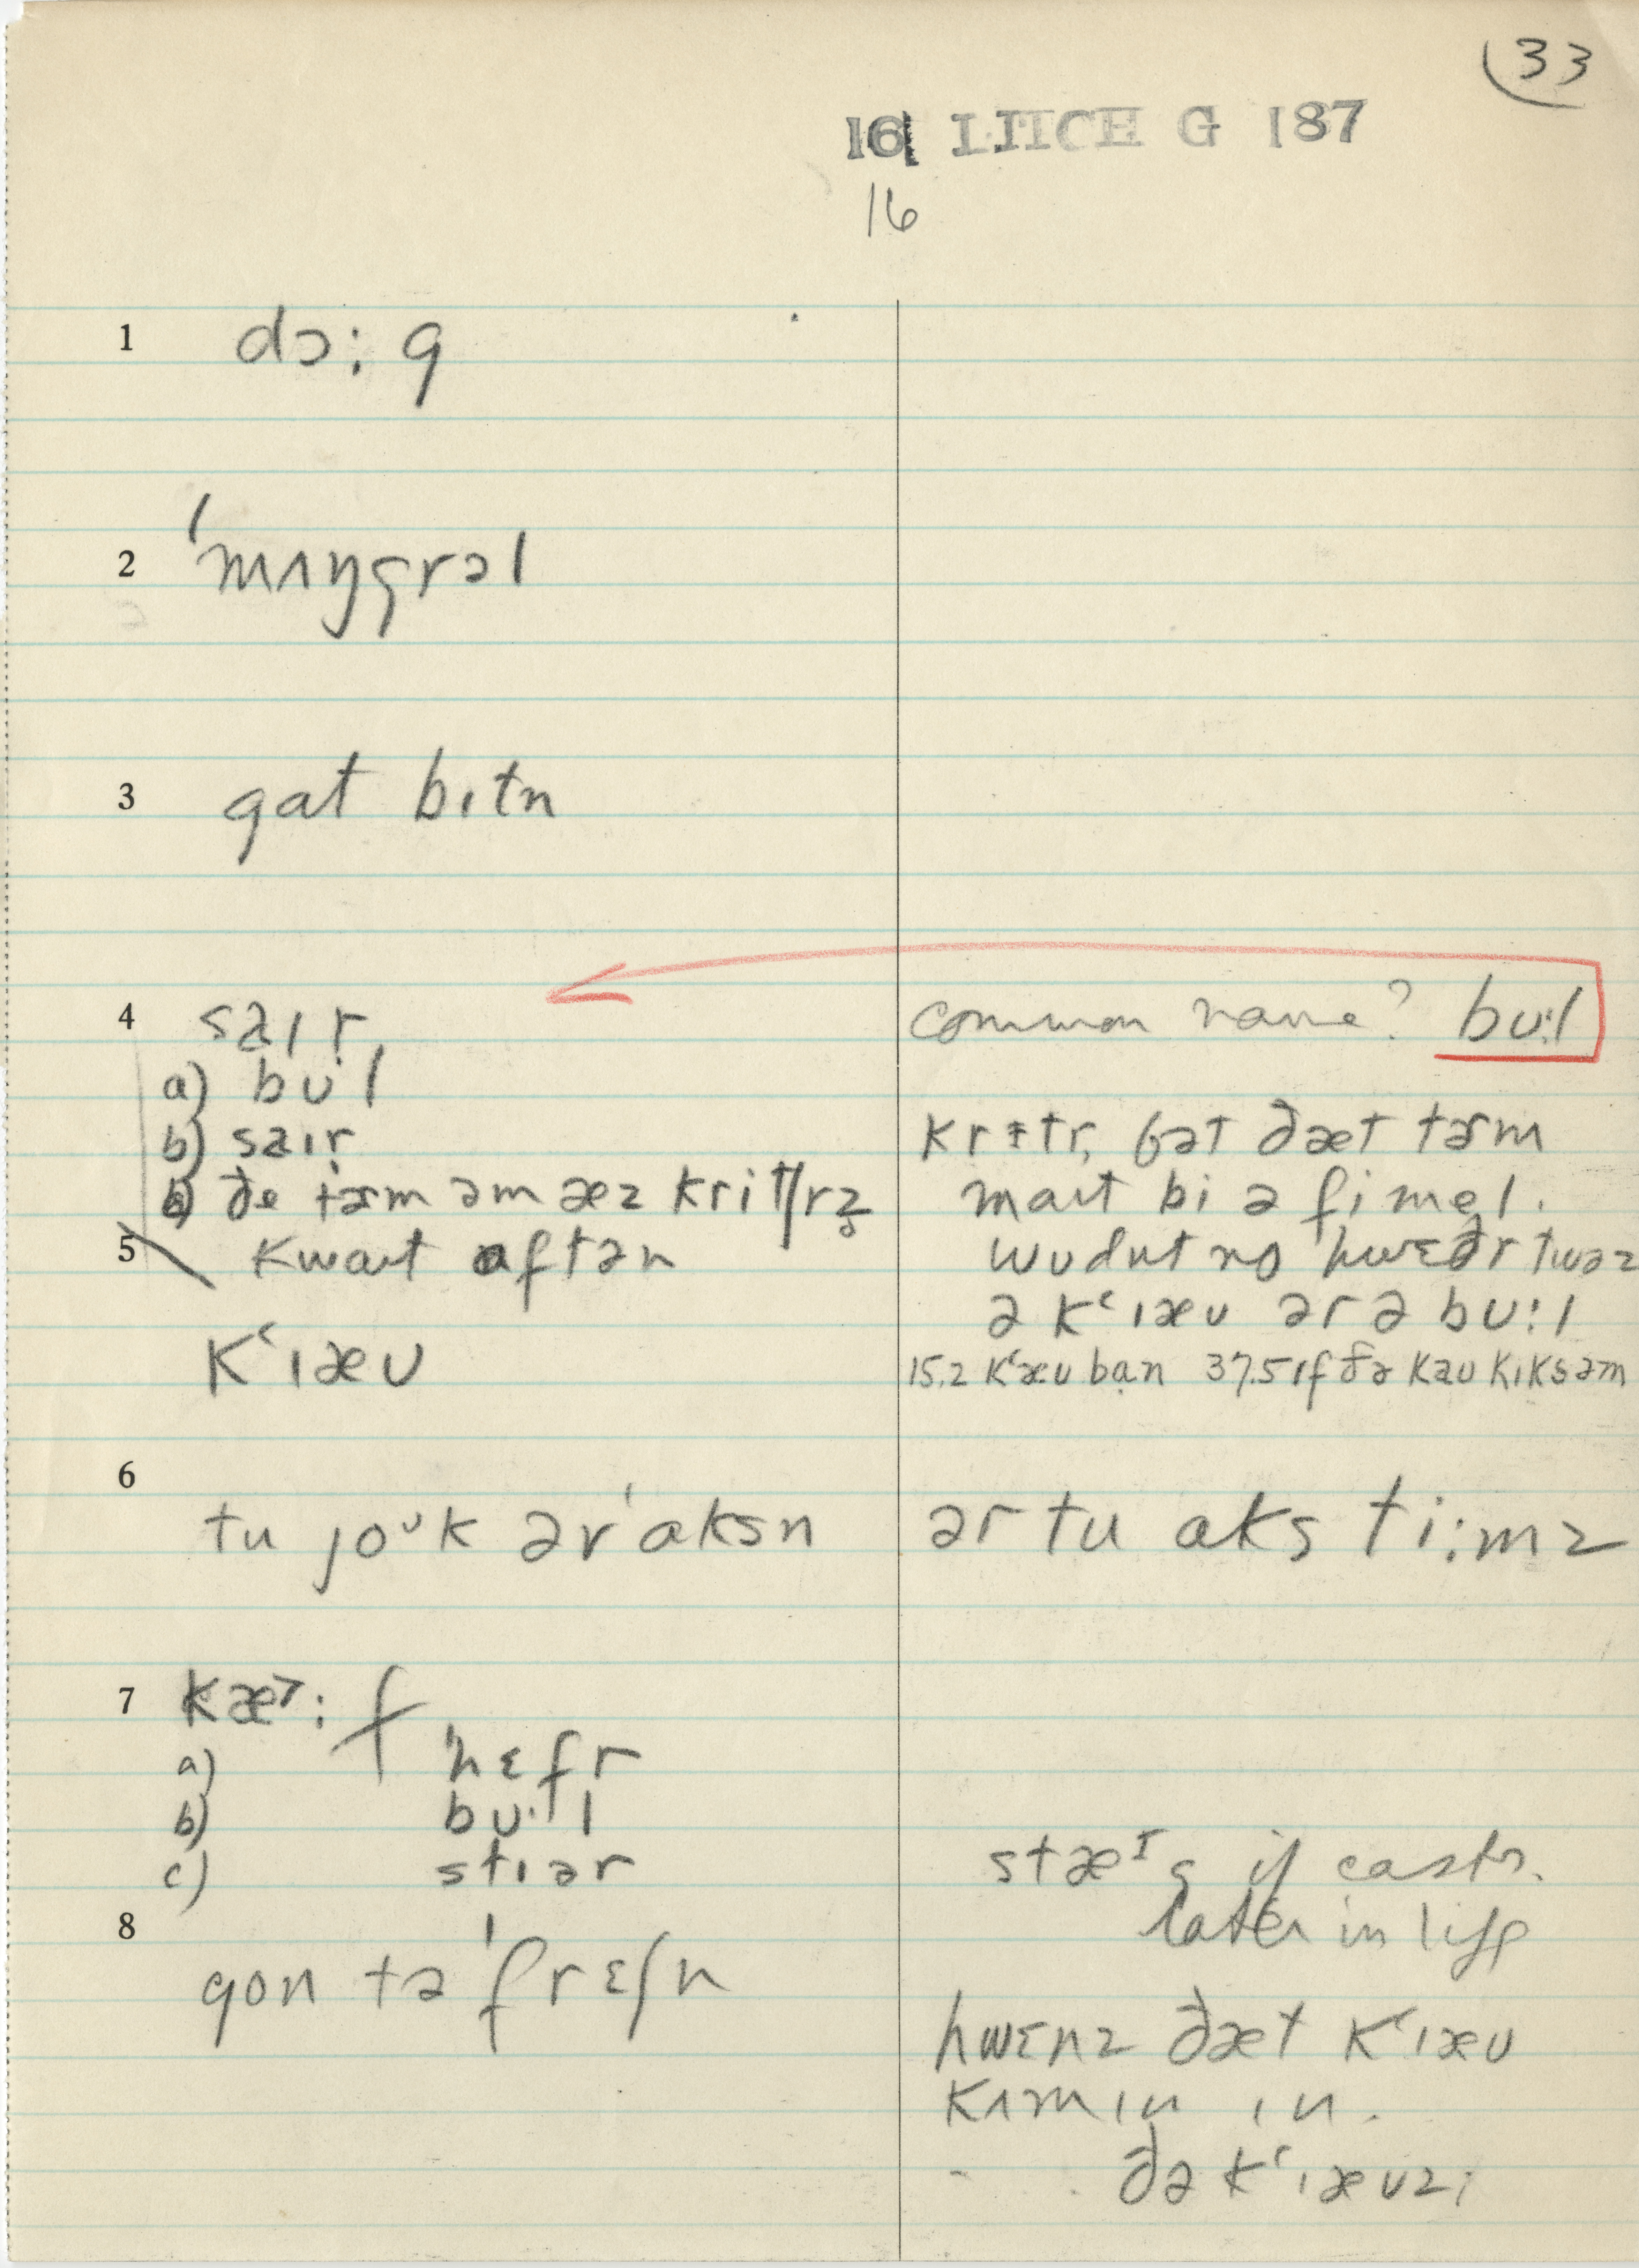 33
16 LITCH G 187
16
1 dɔ:g
2 ˈmʌŋgrəl
3 gat bɪtn
4 saɪr common name? bu:l
a) bu·l
b) saɪr krɪtr, bət ðæt tɚm
c) ðe tɚm əm æz kritʃrz maɪt bi ə fimel.
5 kwaɪt aftən wudnt no hwɛðr twəz
ə kʻɪæʊ ər ə bu:l
kʻɪæʊ 15.2 kʻæʊ ban 37.5 ɪf ðə kaʊ kɪks əm
6 tu joᵘk ər ˈaksn ər tu aks ti:mz
7 kæ˃:f
a) ˈhɛfr
b) bu·l
c) stɪər stæᴵg if castr.
later in life
8 gon tə ˈfrɛʃn
hwɛnz ðæt kʻɪæʊ
kʌmɪn ɪn.
ðə kʻɪæʊz